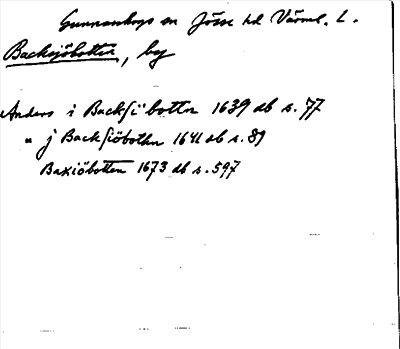 Gunnarskogs sn Jösse hd Värml. L.
Backsjöbotten, by
Anders i Backsiöbottn 1639 db s. 77
" j Backsiöbotten 1641 db s. 89
Baxiöbotten 1673 db s. 597